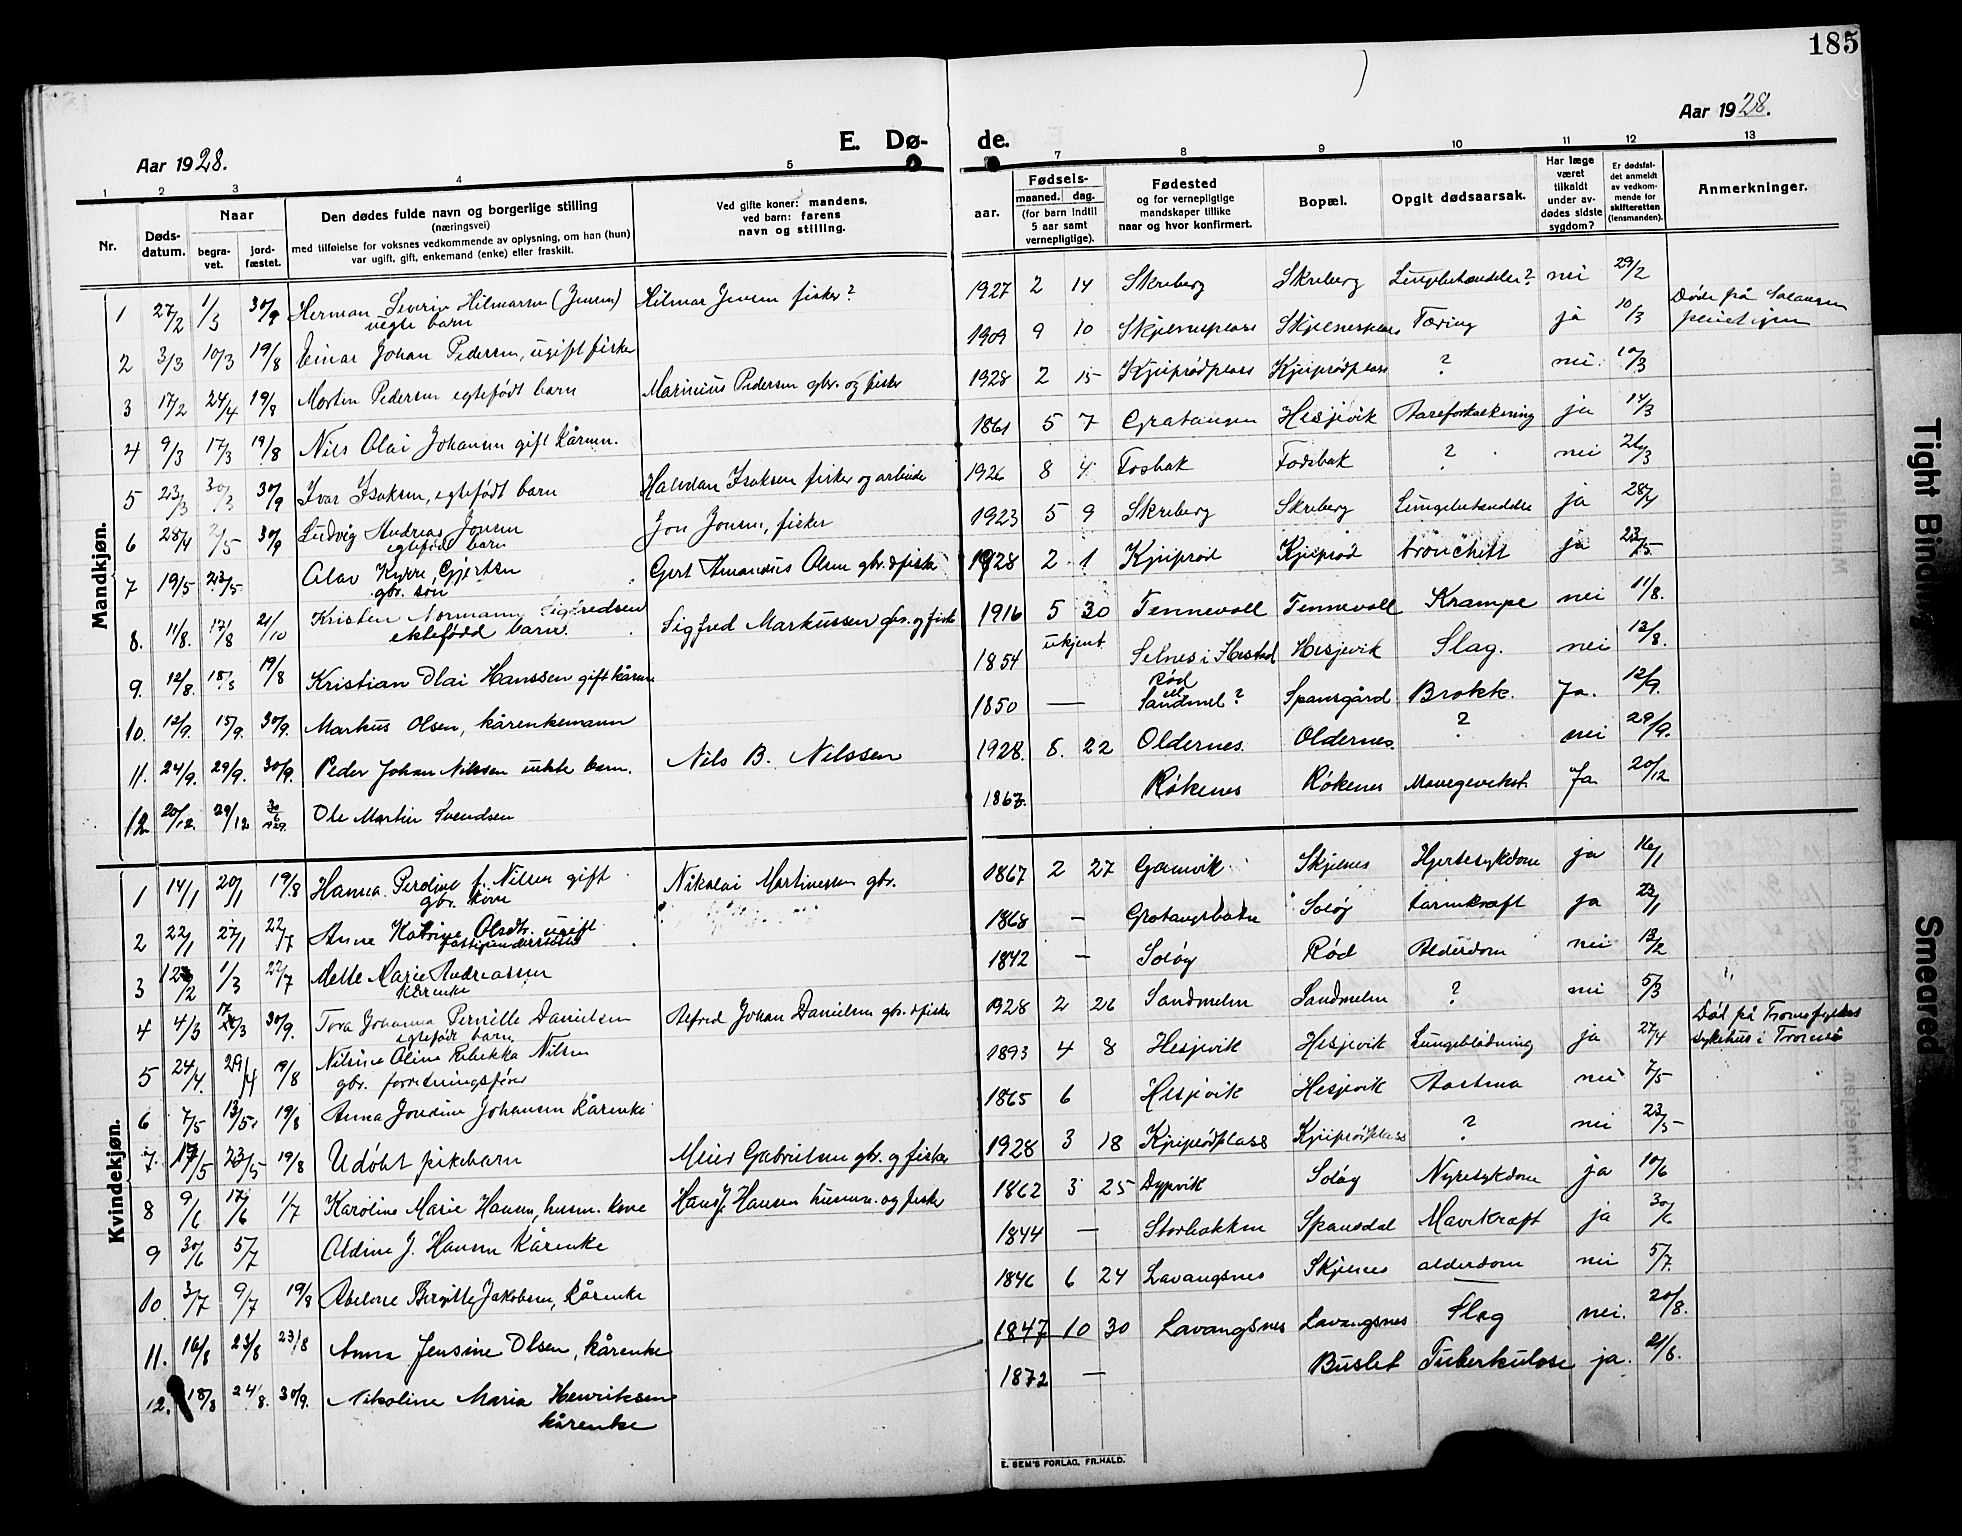 185
Aar 1928.
E. Dø-
de.
Aar 1928.
1 2 3 4 5 7 8 9 10 11 12 13
Nr.
Døds-
datum.
Naar
begra-
vet.
jord-
fæstet.
Den dødes fulde navn og borgerlige stilling
(næringsvei)
med tilføielse for voksnes vedkommende av oplysning, om han (hun)
var ugift, gift, enkemand (enke) eller fraskilt.
Ved gifte koner: mandens,
ved barn: farens
navn og stilling.
aar.
Fødsels-
maaned. dag.
(for barn indtil
5 aar samt
vernepligtige).
Fødested
og for vernepligtige
mandskaper tillike
naar og hvor konfirmert.
Bopæl.
Opgit dødsaarsak.
Har læge
været
tilkaldt
under av-
dødes sidste
sygdom?
Er dødsfal-
det anmeldt
av vedkom-
mende for
skifteretten
(lensmanden).
Anmerkninger.
Mandkjøn.
1 27/2 1/3 30/9 Herman Severin Hilmarsen (Jensen) Hilmar Jensen fisker? 1927 2 14 Skreberg Skreberg Lungebetændelse? nei 29/2
uegte barn
2 3/3 10/3 19/8 Einar Johan Pedersen, ugift fisker 1909 9 10 Skjelnesplass Skjelnesplass Tæring ja 10/3 Døde på
3 17/2 24/4 19/8 Morten Pedersen egtefødt barn Marinius Pedersen gbr. og fisker 1928 2 15 ? nei 10/3
4 9/3 17/3 19/8 Nils Olai Johansen gift kårmn. 1861 5 7 Gratangen Hesjevik Aareforkalkning ja 14/3
5 23/3 30/3 30/9 Ivar Isaksen, egtefødt barn Halvdan Isaksen fisker og arbeider 1926 8 4 Fosbak Fosbak ? nei 26/3
6 28/4 2/5 30/9 Ludvig Andreas Jonsen Jon Jonsen, fisker 1923 5 9 Skreberg Skreberg Lungebetændelse ja 28/4
egtefødt barn
7 19/5 23/5 Olav Kyrre Gjertsen Gert Amandus Olsen gbr. & fisker 1928 2 1 Kjeiprød Kjeiprød bronchitt ja 23/5
gbr. søn
8. 11/8. 17/8 21/10 Kristen Normann Sigfredsen Sigfred Markussen gbr. og fisk 1916 5 30 Tennevoll Tennevoll Krampe nei 11/8.
ektefødd barn.
9. 12/8. 18/8 19/8 Kristian Olai Hanssen gift kårm 1854 ukjent Selnes i Hestad Hesjevik Slag. nei 12/8.
10. 12/9. 15/9. 30/9. Markus Olsen, kårenkemann 1850 — Rød ell Sandmel? Spansgård Brokk. Ja. 12/9.
11. 24/9. 29/9. 30/9. Peder Johan Nilssen uekte barn. Nils B. Nilssen 1928. 8. 22 Oldernes. Oldernes. ? nei 29/9.
12 20/12. 29/12 30/6 1929. Ole Martin Svendsen 1867. Røkenes Røkenes Mavegevekst. Ja 20/12
Kvindekjøn.
1 14/1 20/1 19/8 Hanna Perdine f. Nilsen gift Nikolai Martinessen gbr. 1867 2 27 Gamvik Skjelnes Hjertesykdom ja 16/1
gbr. kone
2 22/1 27/1 22/7 Anne Katrine Olsdtr. ugift 1868 — Gratangsbotn Soløy tarmkræft ja 23/1
fattigunderstøttet
3 1/3 22/7 Mette Marie Andreassen 1842 — Soløy Rød Alderdom nei 13/2
Kårenke
4 4/3 30/9. Tora Johanna Pernille Danielsen Alfred Johan Danielsen gbr. & fisker 1928 2 26 Sandmelen Sandmelen ? nei 5/3
egtefødt barn
5 24/4. 29/4 19/8 Nilsine Oline Rebekka Nilsen 1893 4 8 Hesjevik Hesjevik Lungeblødning ja 27/4 Død på Tromsfylkes
gbr. forretningsfører sykehus i Tromsø
6 7/5 13/5. 19/8 Anna Jondine Johansen kårenke 1865 6 Hesjevik Hesjevik Aastma nei 7/5
7. 17/5 23/5 19/8 Udøbt pikebarn Meier Gabrielsen gbr. og fisker 1928 3 18 Kjeiprødplass Kjeiprødplass ? nei 23/5
8 9/6 17/6 1/7 Karoline Marie Hansen, husm. kone Hans J. Hansen husmn. og fisker 1862 3 25 Dypvik Soløy Nyresykdom ja 10/6
9 30/6 5/7 Oldine J. Hansen Kårenke 1844 — Storbakken Spansdal Mavekræft ja 30/6
10. 3/7 9/7 19/8 Abelone Birgitte Jakobsen, kårenke 1846 6 24 Lavangsnes Skjelnes alderdom nei 5/7.
11. 16/8 23/8 23/8 Anna Jensine Olsen, kårenke 1847 10 30 Lavangsnes Lavangsnes Slag nei. 20/8.
12. 18/8 24/8. 30/9. Nikoline Maria Henriksen 1872 — Buslet Tuberkulose ja. 21/8.
kårenke
E. SEM'S FORLAG, FR.HALD.
Tight Binding
Smeared